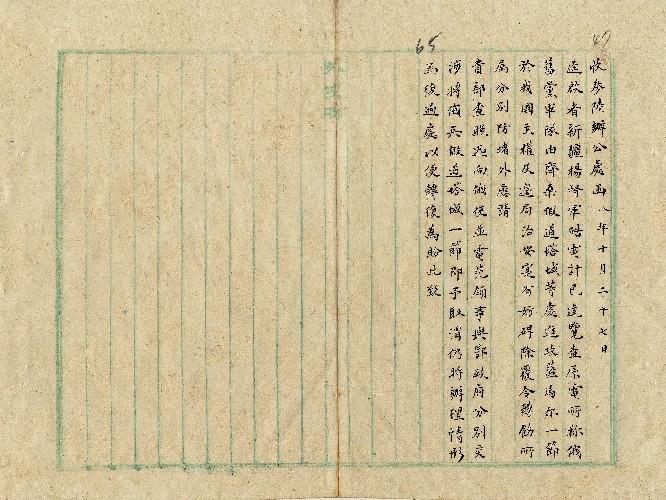 收參陸辦公處函 八年十月二十七日
逕啟者新疆楊督軍皓電計已達覽查原電所称俄
舊黨軍隊由齊桑假道塔城等處進攻薩馬尔一節
於我國主權及邊局治安實有妨碍除覆令轉飭所
屬分别防堵外應請
貴部查照迅向俄使並電范領事與鄂政府分别交
涉將俄兵假道塔城一節即予取消仍將辦理情形
函復過處以便轉復為盼此致
65